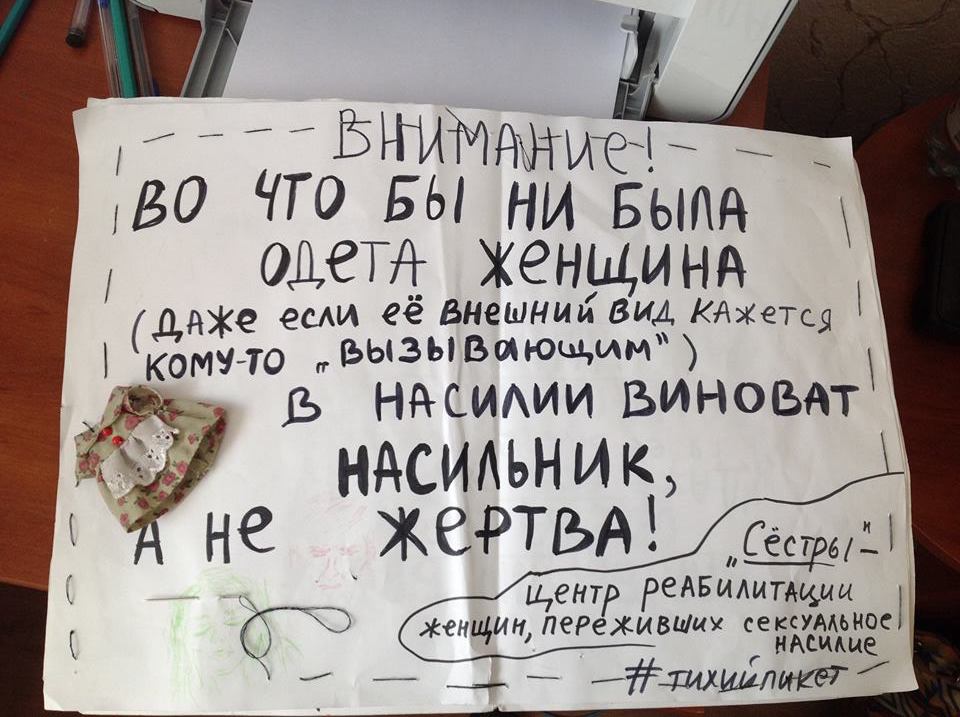 ВНИМАНИЕ!
ВО ЧТО БЫ НИ БЫЛА
ОДЕТА ЖЕНЩИНА
(ДАЖЕ ЕСЛИ ЕЁ ВНЕШНИЙ ВИД КАЖЕТСЯ
КОМУ-ТО „ВЫЗЫВАЮЩИМ")
В НАСИЛИИ ВИНОВАТ
НАСИЛЬНИК,
А НЕ ЖЕРТВА!
„СЁСТРЫ"-
ЦЕНТР РЕАБИЛИТАЦИИ
ЖЕНЩИН, ПЕРЕЖИВШИХ СЕКСУАЛЬНОЕ
НАСИЛИЕ
#ТИХИЙПИКЕТ